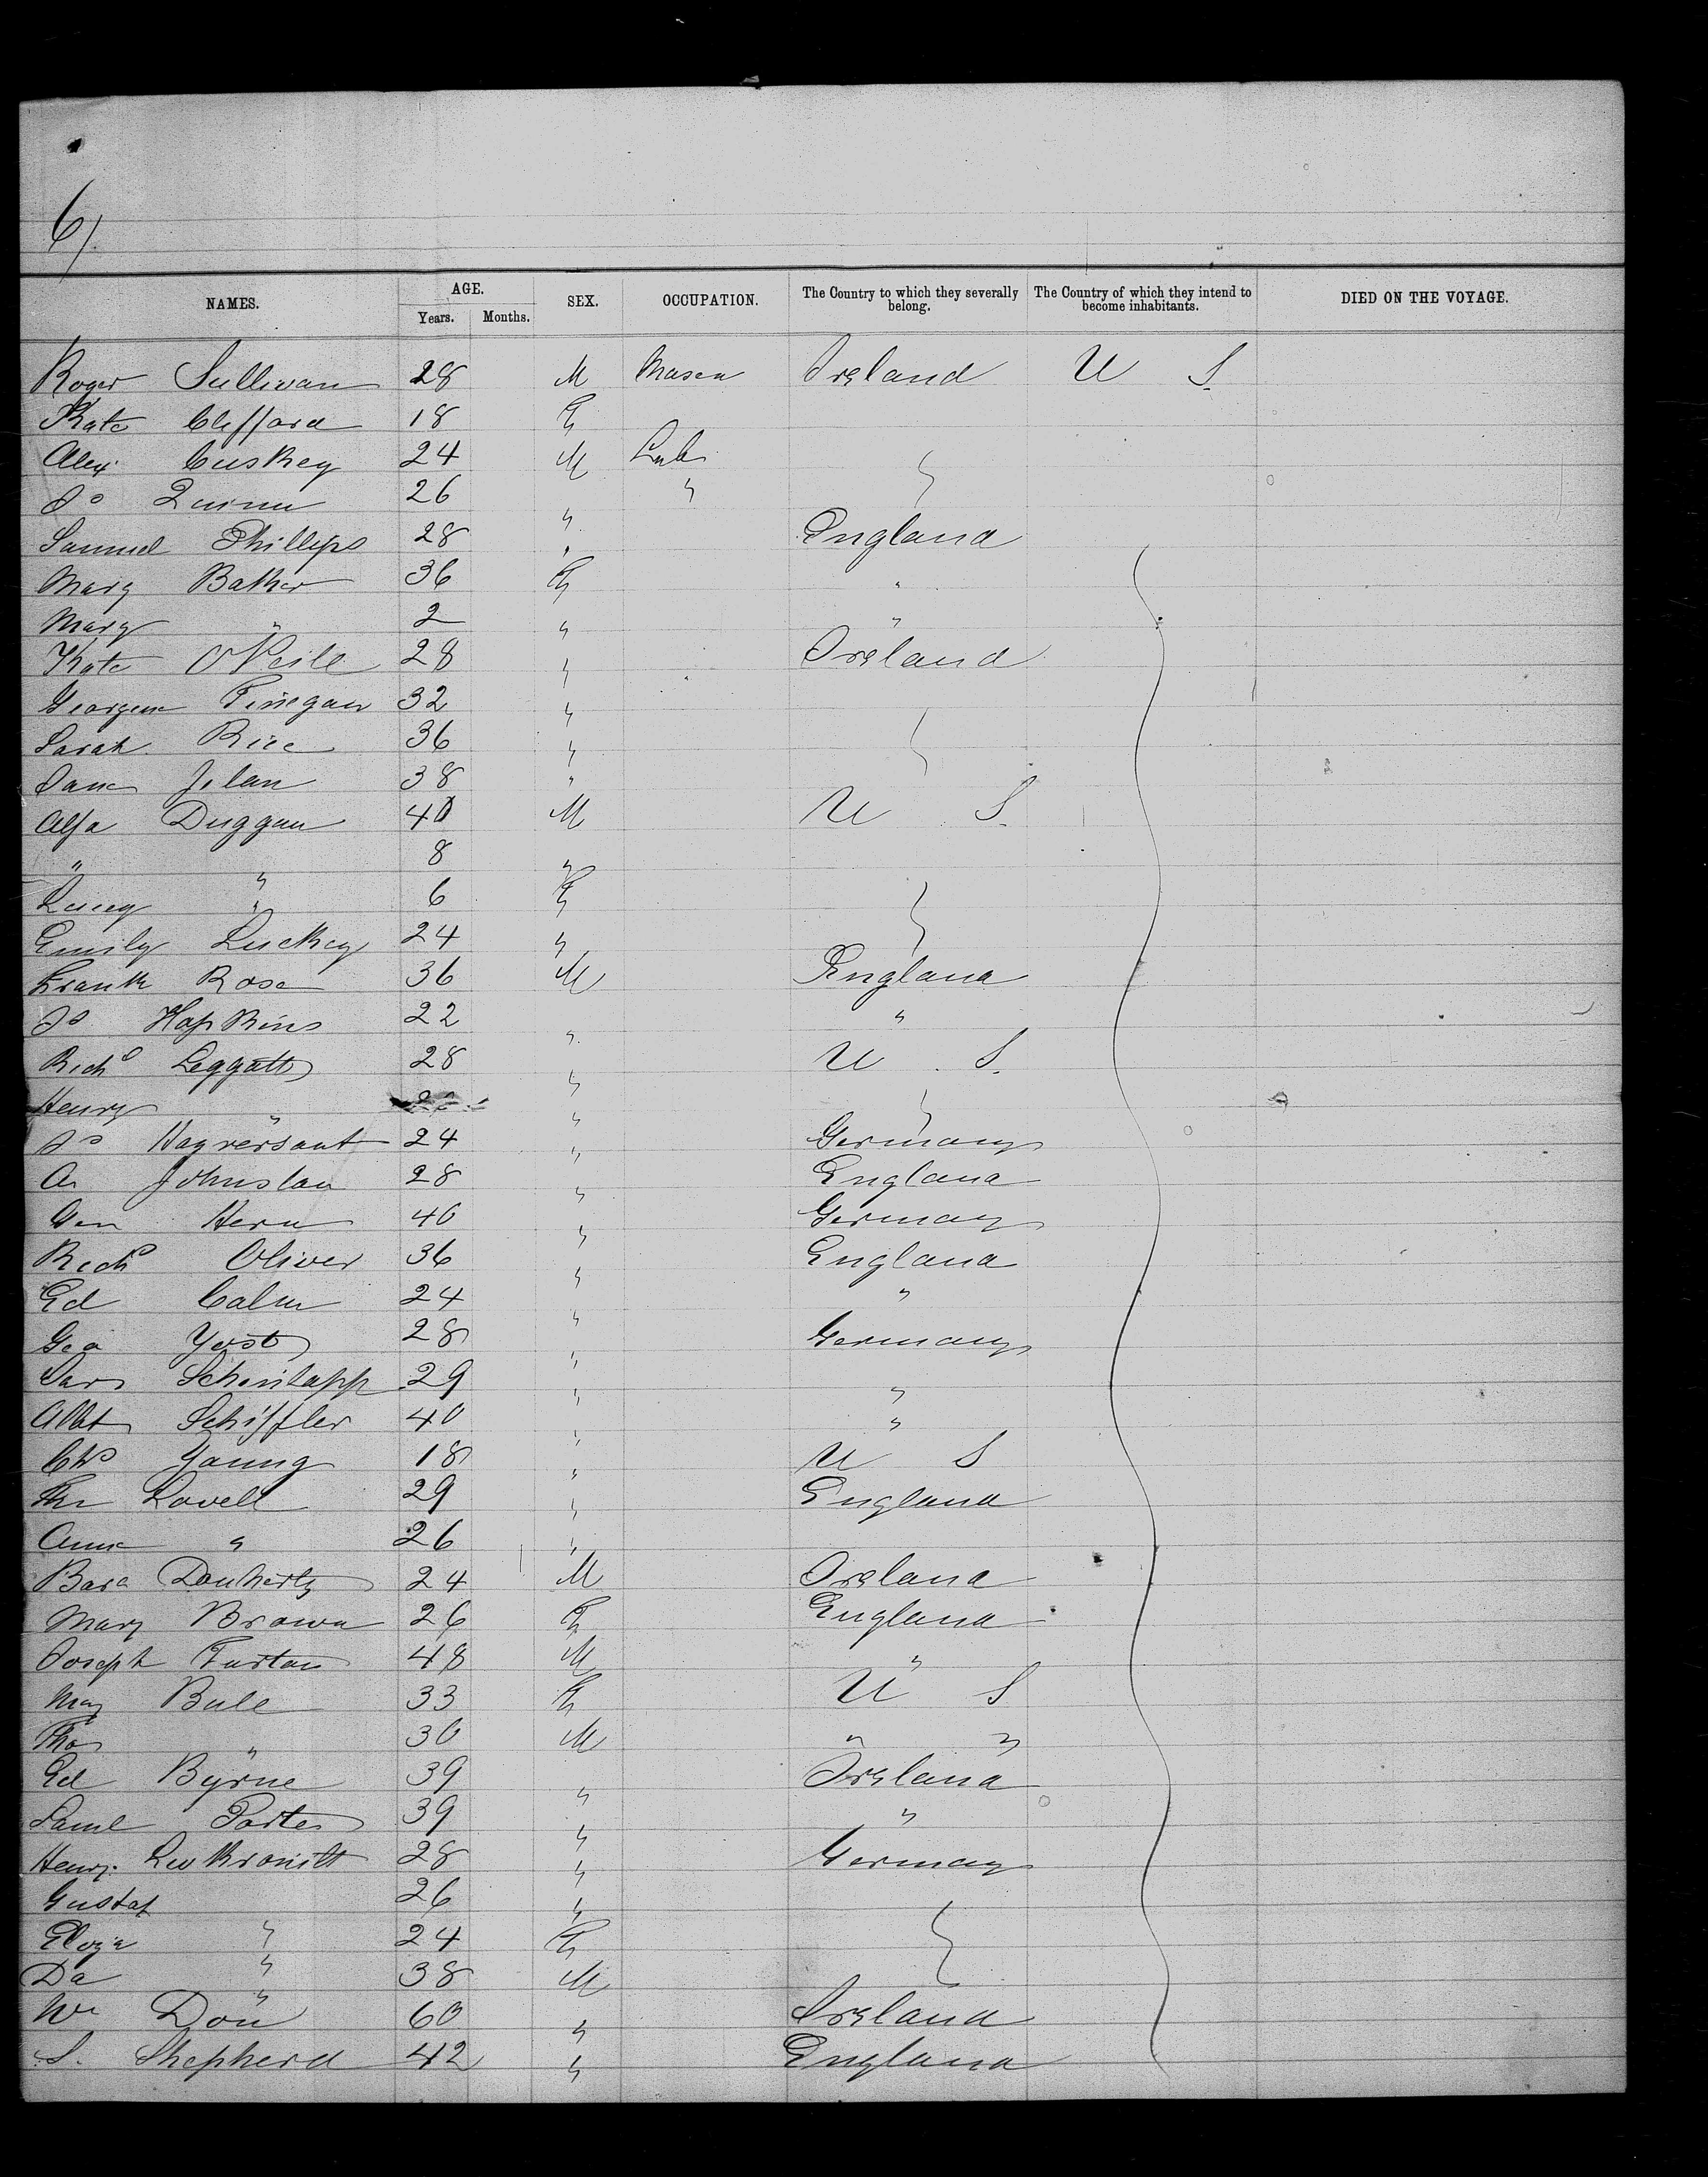 6/.
NAMES. AGE. Years. Months. SEX. OCCUPATION. The Country to which they severally belong. The Country of which they intend to become inhabitants. DIED ON THE VOYAGE.
Roger Sullivan 28 M Mason Ireland U S.
Kate Clifford 18 F
Alex Cuskey 24 M Lab
Jo Quinn 26 " "
Samuel Phillips 28 " England
Mary Baker 36 F "
Mary " 2 " "
Kate O'Neill 28 " Ireland
Finegan 32 "
Sarah Rice 36 "
Jane 38 "
Duggan 40 M U S.
" " 8 "
Lucy " 6 F
Emily Luckey 24 "
Frank Rose 36 M England
Jo Hopkins 22 " "
Richd Leggatt 28 " U S.
Henry " "
Jo 24 " Germany
A Johnston 28 " England
Geo Hern 40 " Germany
Richd Oliver 36 " England
Ed 24 " "
Geo Yost 28 " Germany
29 " "
Albt Schiffler 40 " "
Chs Young 18 " U S
Lovell 29 " England
Anna " 26 "
24 M Ireland
Mary Brown 26 F England
Joseph 48 M "
May Bule 33 F U S
Thos " 30 M " "
Ed Byrne 39 " Ireland
Saml Porter 39 " "
Henry 28 " Germany
Gustaf 26 "
" 24 F
Da " 38 M
Wm " 60 " Ireland
S. Shepherd 42 " England